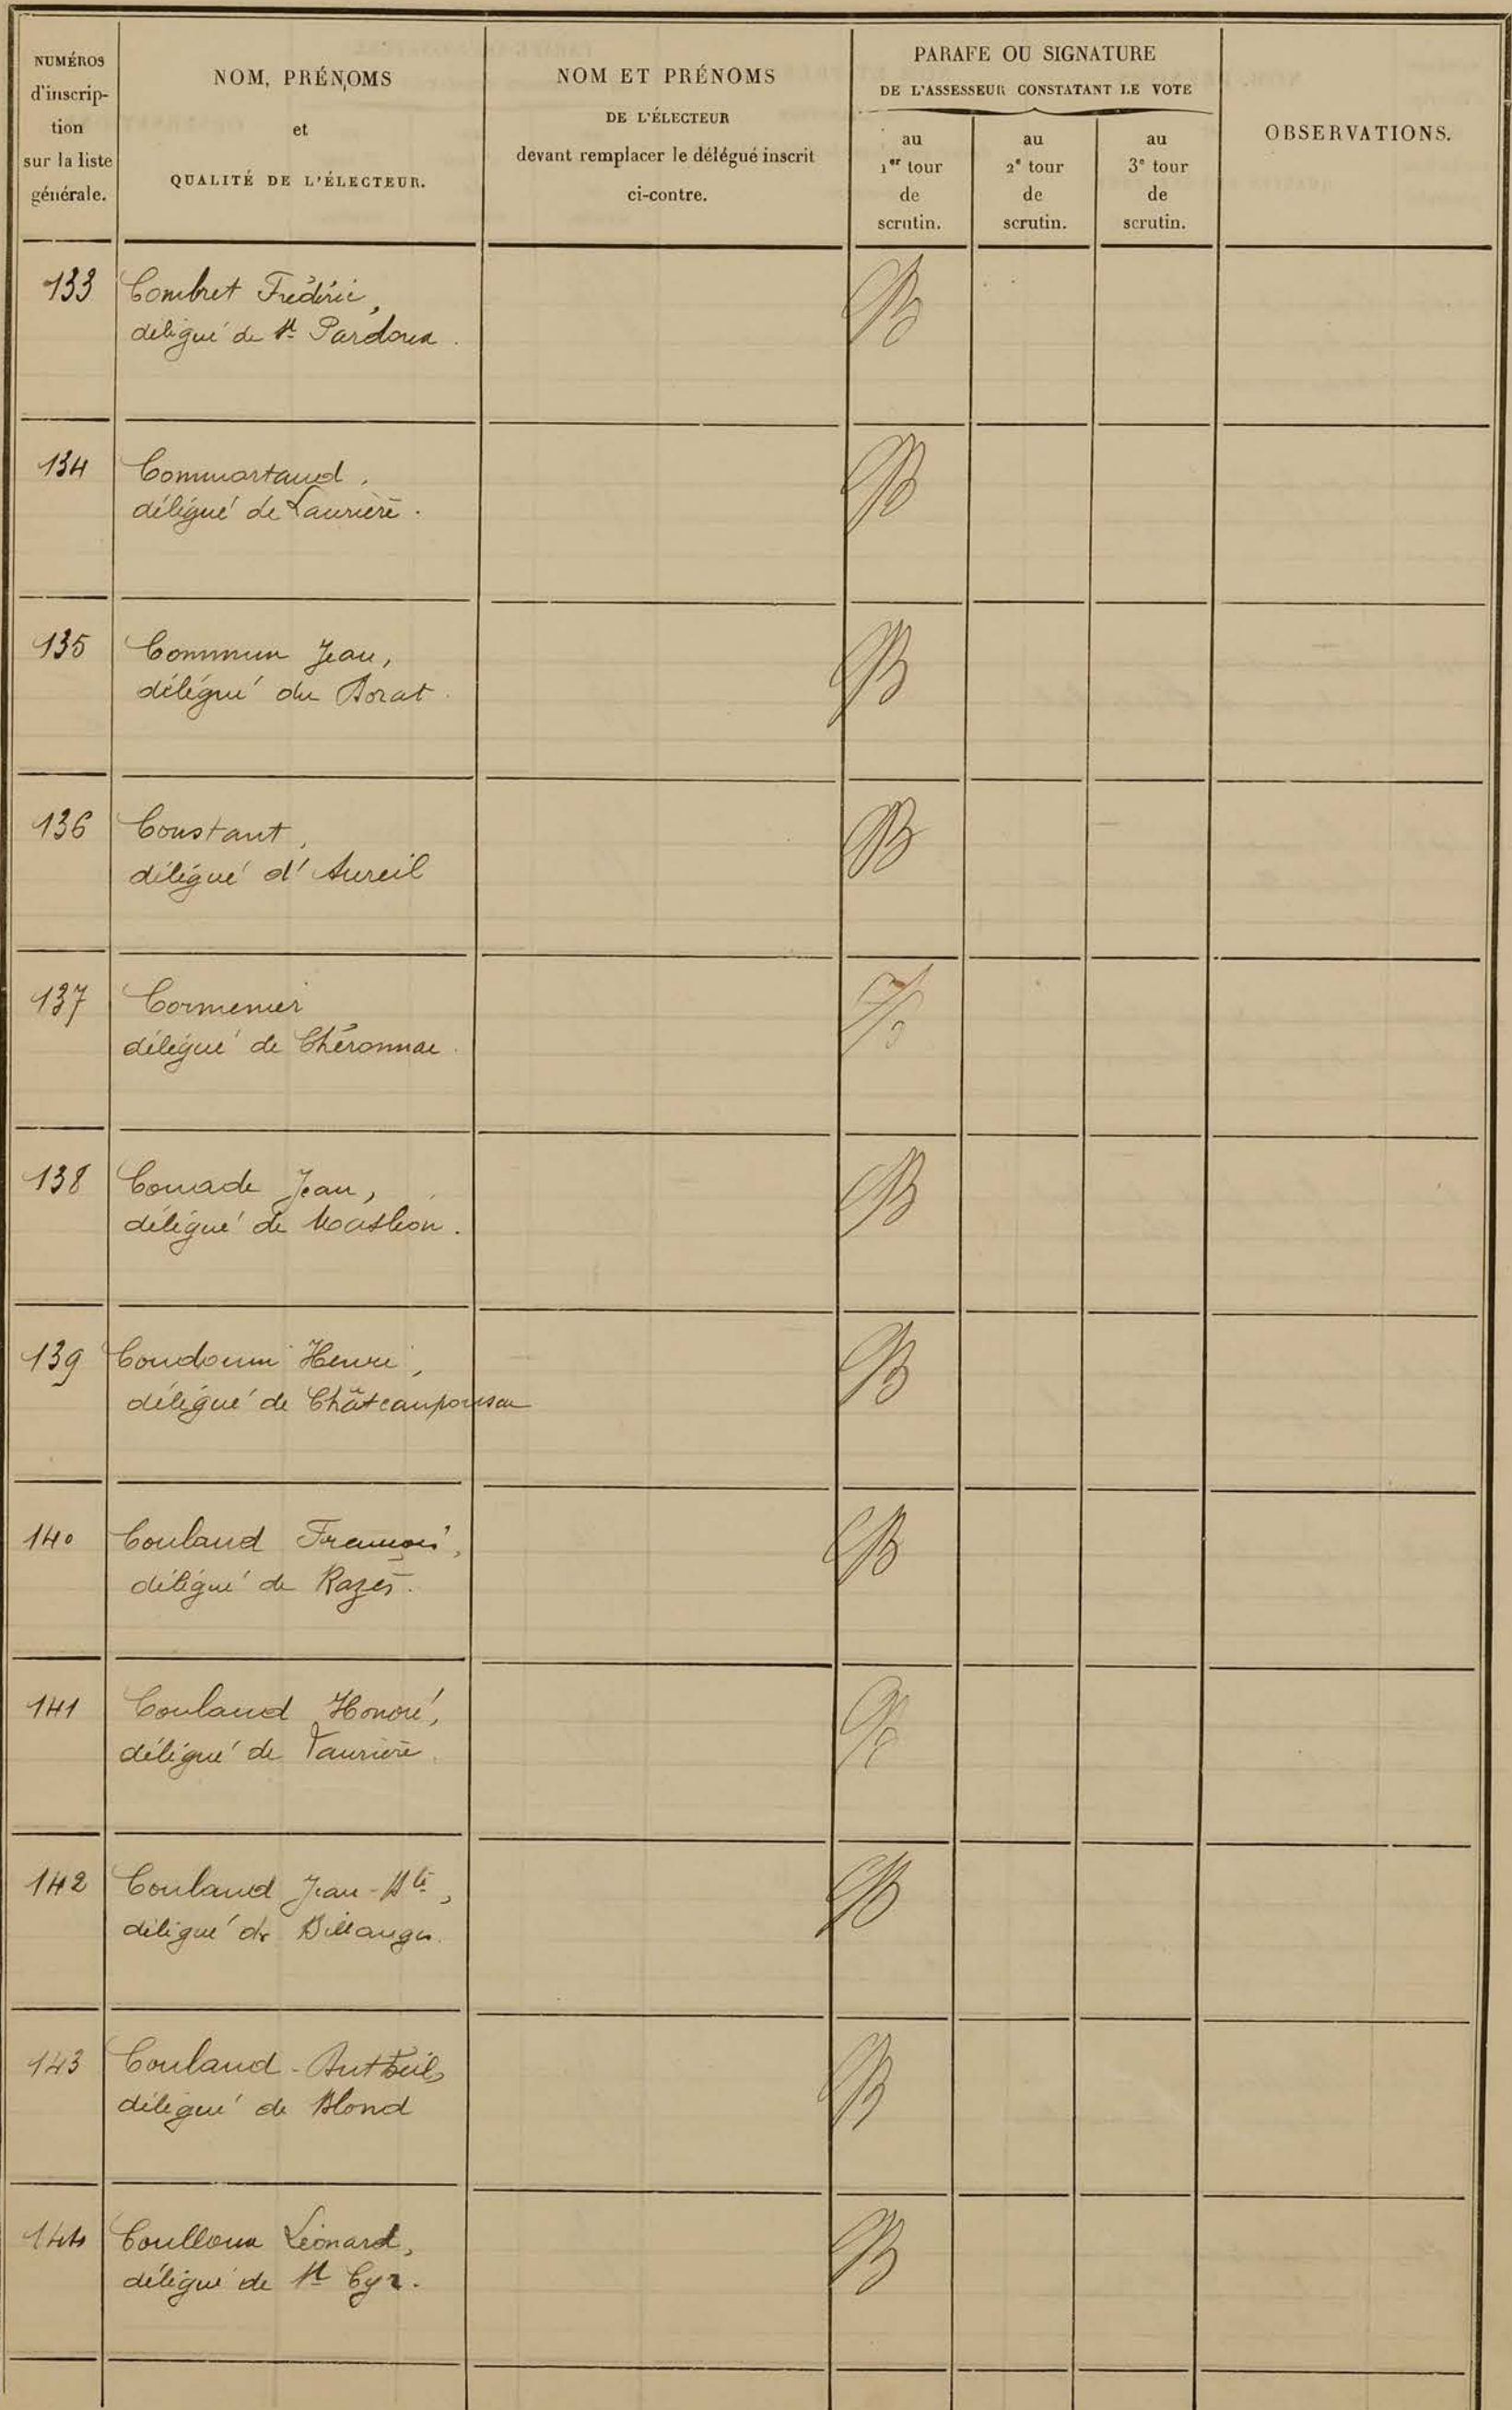 NUMÉROS
d'inscrip-
tion
sur la liste
générale.
NOM, PRÉNOMS
et
QUALITÉ DE L'ÉLECTEUR.
NOM ET PRÉNOMS
DE L'ÉLECTEUR
devant remplacer le délégué inscrit
ci-contre.
PARAFE OU SIGNATURE
DE L'ASSESSEUR CONSTATANT LE VOTE
au
1er tour
de
scrutin.
au
2e tour
de
scrutin.
au
3e tour
de
scrutin.
OBSERVATIONS.
133 Combret Frédéric,
délégué de St Pardoux.
134 Commartaud,
délégué de Laurière.
135 Commun Jean,
délégué du Dorat.
136 Constant,
délégué d'Aureil
137 Cormenier
délégué de Chéronnac.
138 Jean,
délégué de Masléon.
139 Henri,
délégué de Châteauponsac
140 Couland François,
délégué de Razès.
141 Couland Honoré,
délégué de Laurière.
142 Couland Jean-Bte,
délégué de Billanges.
143 Couland-
délégué de Blond
144 Coulloux Léonard,
délégué de St Cyr.